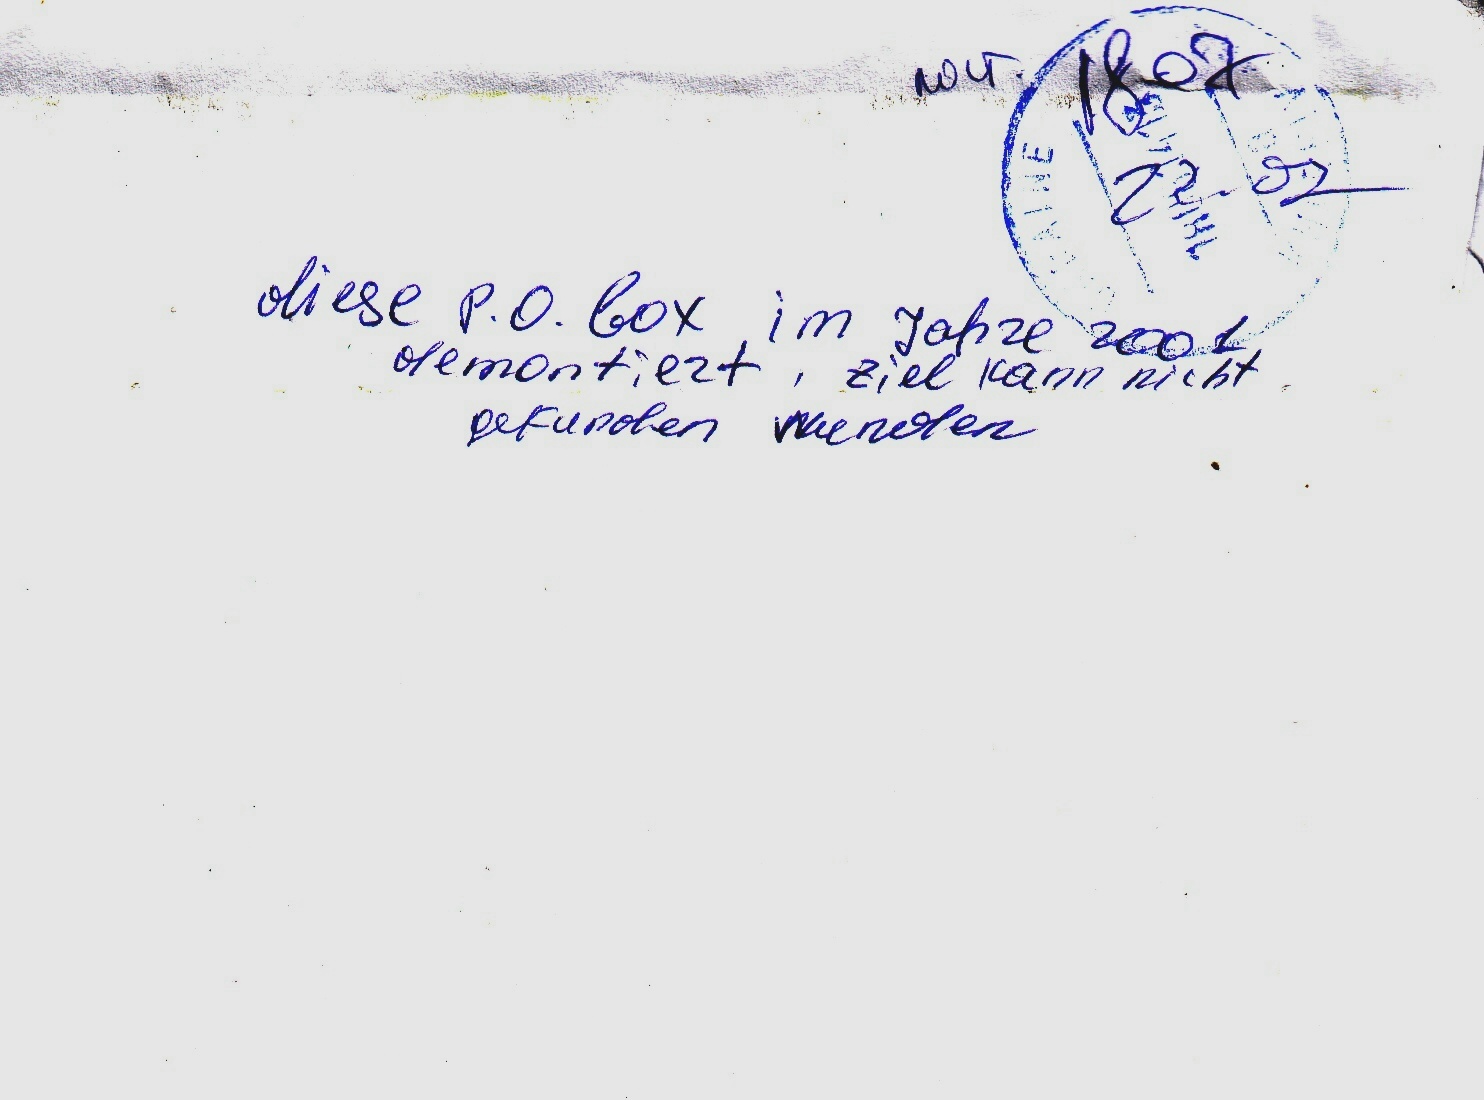 18.07
22-02
UKRAINE
diese P.O. box im Jahre 2001
demontiert, ziel kann nicht
gefunden werden